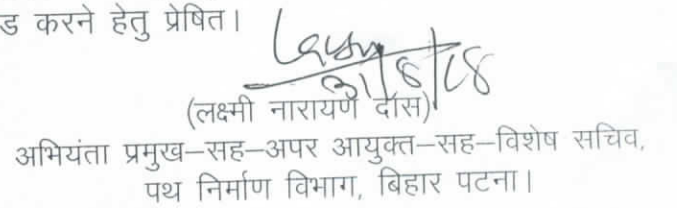 ड करने हेतु प्रेषित।
31/8/18
(लक्ष्मी नारायण दास)
अभियंता प्रमुख–सह–अपर आयुक्त–सह–विशेष सचिव,
पथ निर्माण विभाग, बिहार पटना।